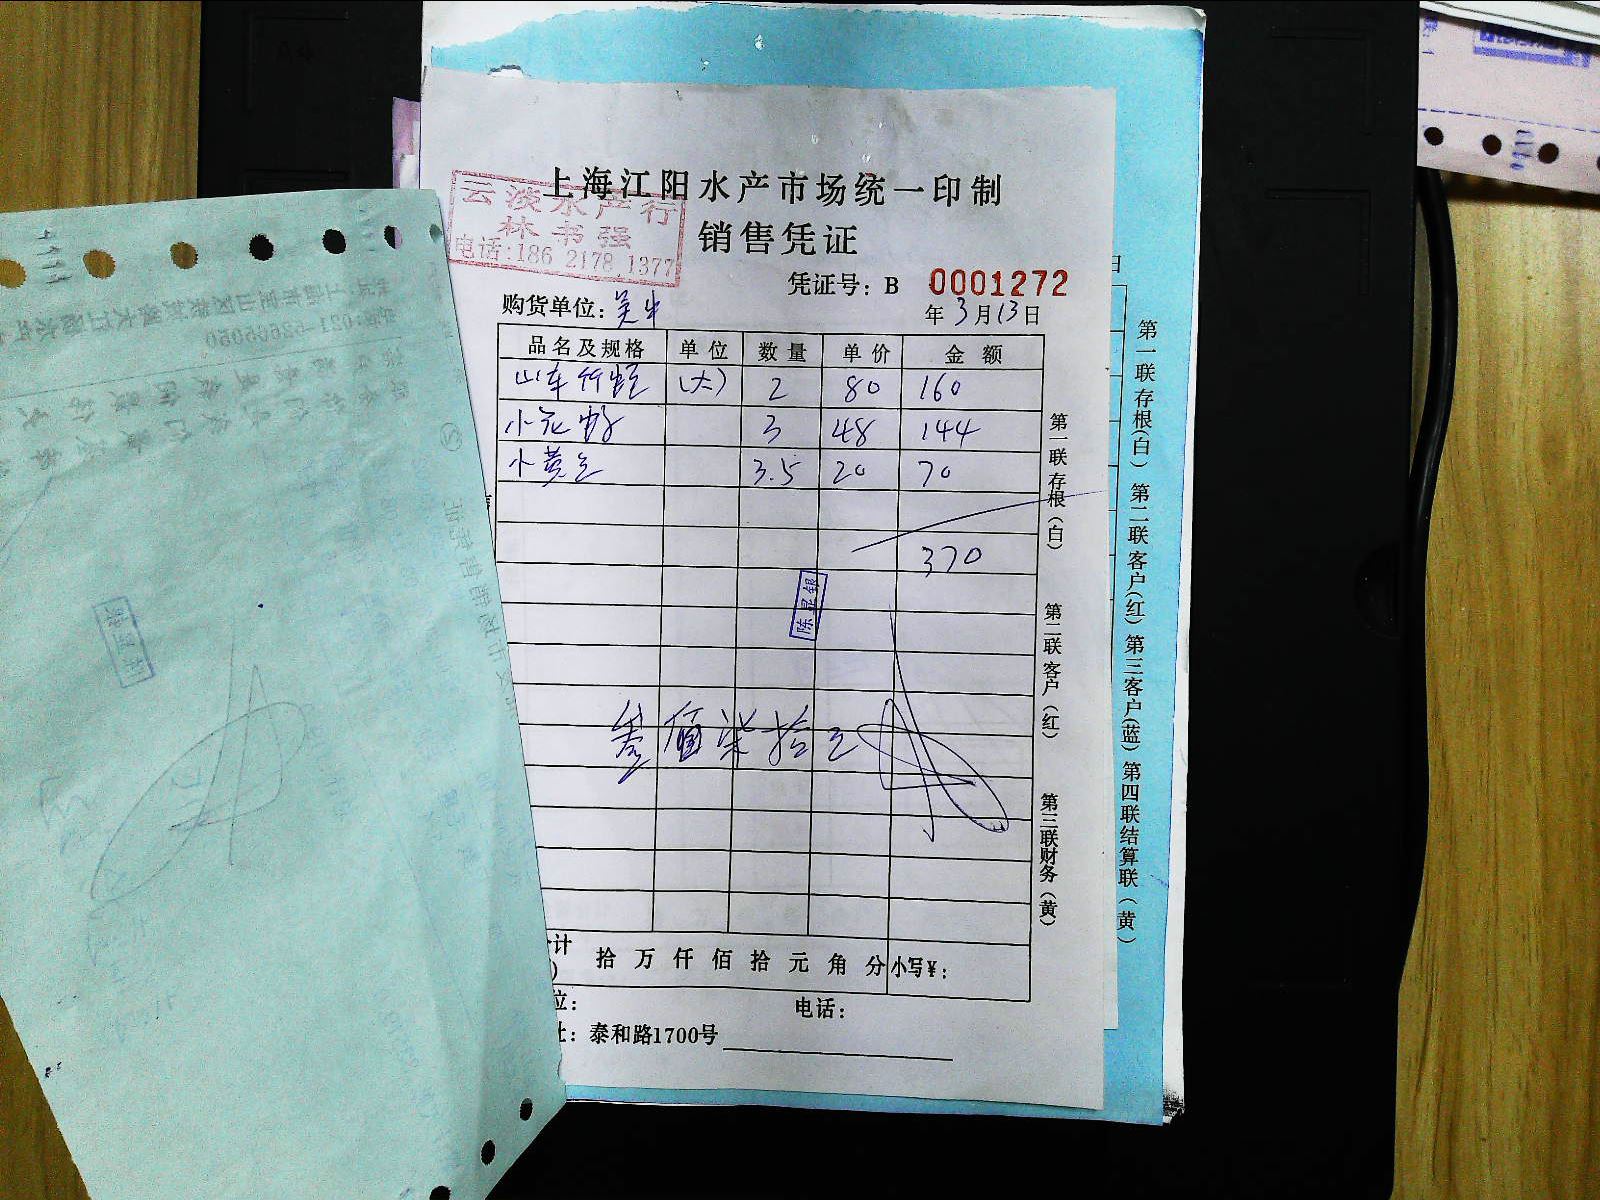 上海江阳水产市场统一印制
云淡水产行
林书强
电话:186 2178 1377
销售凭证
凭证号: B 0001272
购货单位: 吴中
年 3月13日
品名及规格 单位 数量 单价 金额
山东竹蛏 (大) 2 80 160
小花蛤 48 144
小黄 3.5 20 70
370
陈星银
叁佰柒拾元
计 拾万仟佰拾元角分 小写¥:
位: 电话:
址: 泰和路1700号
第一联存根(白) 第二联客户(红) 第三联财务(黄)
第一联存根(白) 第二联客户(红) 第三客户(蓝) 第四联结算联(黄)
日